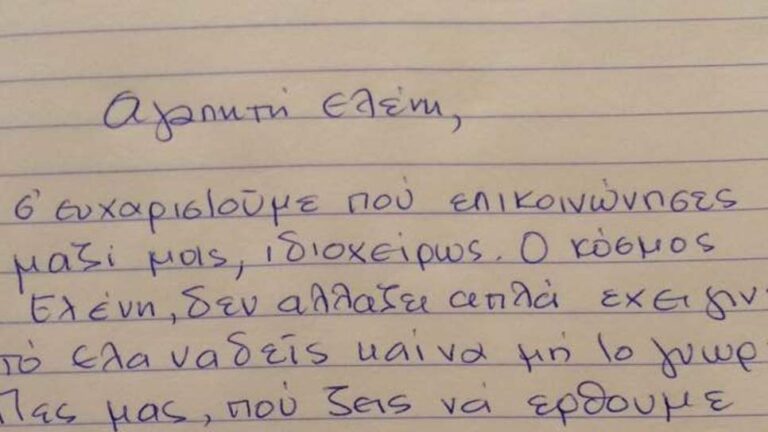 Αγαπητή Ελένη,
σ' ευχαριστούμε πού επικοινώνησες
μαζί μας, ιδιοχείρως. Ο κόσμος
Ελένη, δεν αλλάζει απλά έχει γιν
τό έλα ναδείς καί να μή το γνωρ
Πες μας, πού ζεις νά έρθουμε